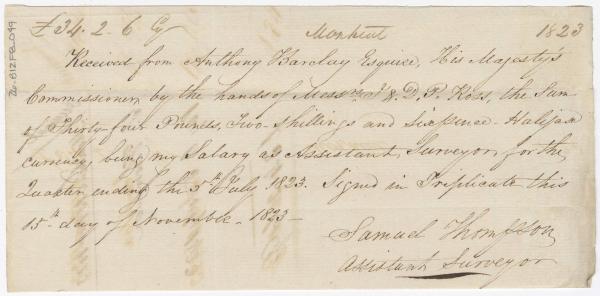 £34.2.6 Cy Montreal 1823
Received from Anthony Barclay Esquire, His Majesty's
Commissioner, by the hands of Messrs J & D. P. Ross, the Sum
of Thirty-four Pounds, Two-shillings and Sixpence - Halifax
currency, being my Salary as Assistant Surveyor, for the
Quarter ending the 5th July 1823. Signed in Triplicate this
15th day of November - 1823 -
Samuel Thompson
Assistant Surveyor